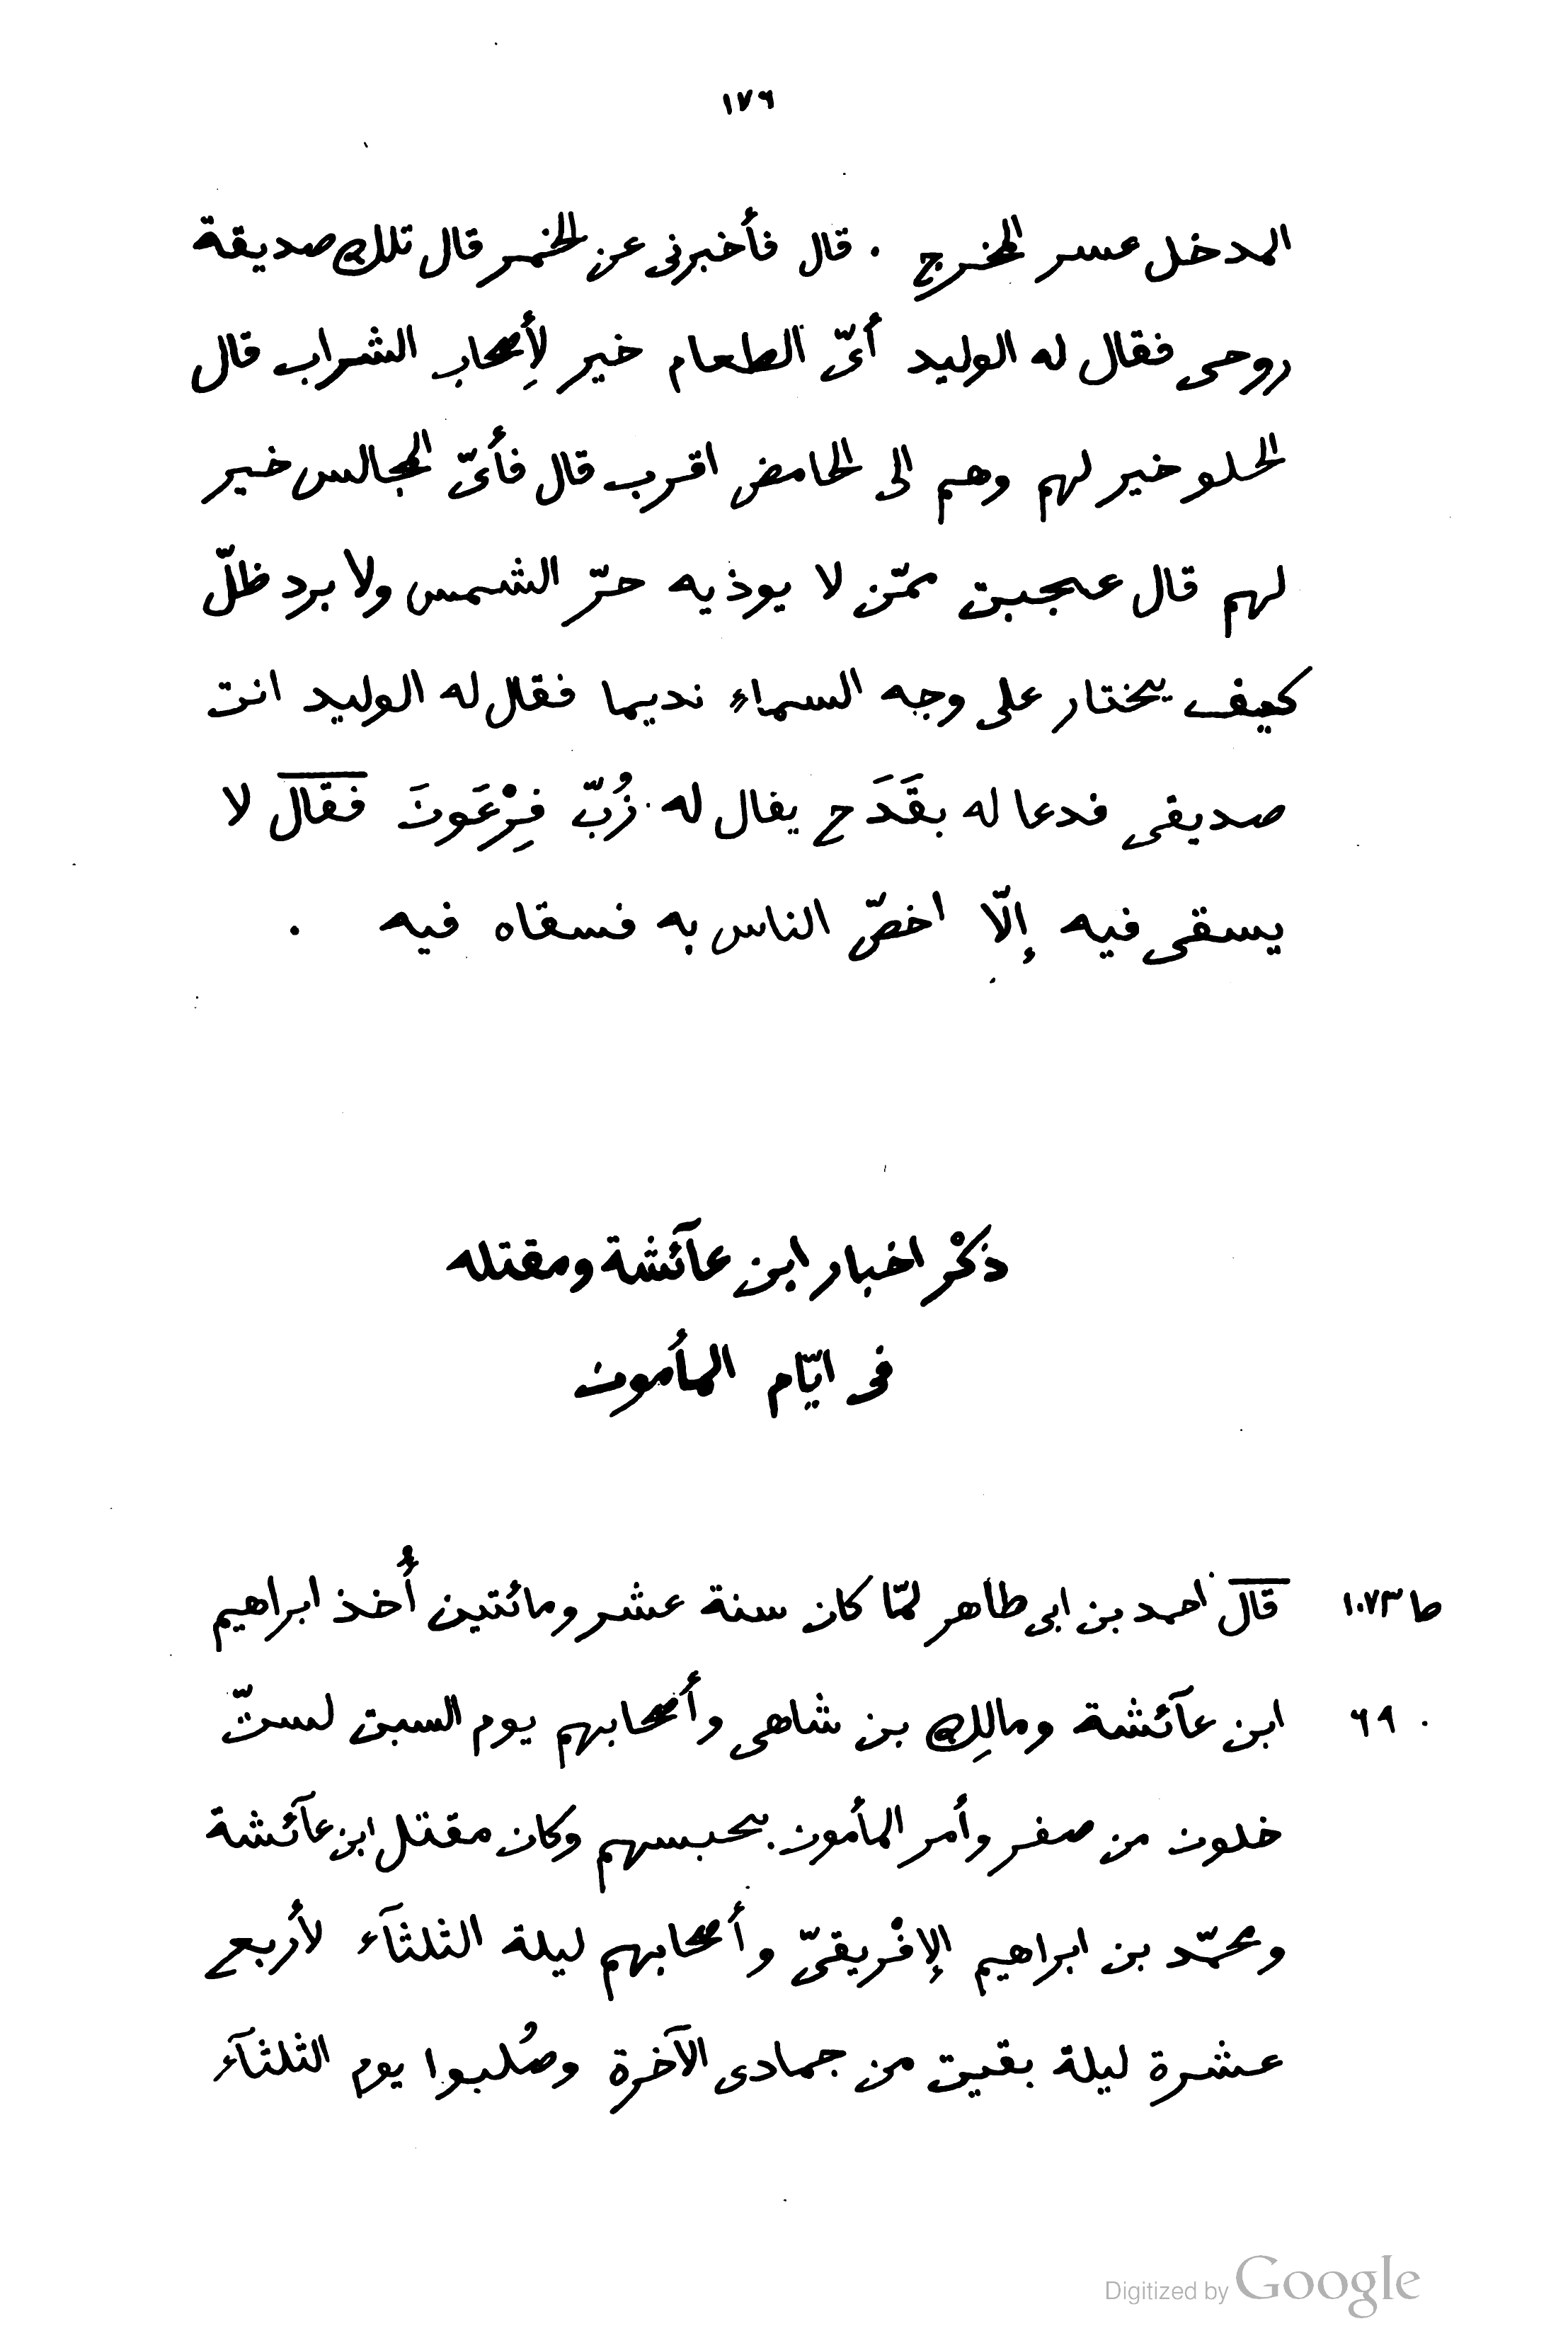 ١٧٦
المدخل عسر المخرج . قال فأخبرنى عن الخمر قال تلك صديقة
روحى فقال له الوليد أىّ الطعام خير لأِصحاب الشراب قال
الحلو خير لهم وهم الى الحامض اقرب قال فأىّ المجالس خير
لهم قال عجبت ممّن لا يوذيه حرّ الشمس ولا برد ظلّ
كيف يختار على وجه السماء نديما فقال له الوليد انت
صديقى فدعا له بقَدَح يقال له زُبّ فِرْعَونَ فقال لا
يسقى فيه إلّا اخصّ الناس به فسقاه فيه .
ذكْر اخبار ابن عآئشة ومقتله
فى ايّام المأمون
ط ١٠٧٣ قال احمد بن ابى طاهر لمّا كان سنة عشر ومائتين أُخذ ابراهيم
٦٩ . ابن عآئشة ومالِك بن شاهى وأصحابهم يوم السبت لستّ
خلون من صفر وأمر المأمون بحبسهم وكان مقتل ابن عآئشة
ومحمّد بن ابراهيم الإفْريقىّ وأصحابهم ليلة الثلثآء لأربع
عشرة ليلة بقيت من جمادى الآخرة وصُلبوا يوم الثلثآء
Digitized by Google